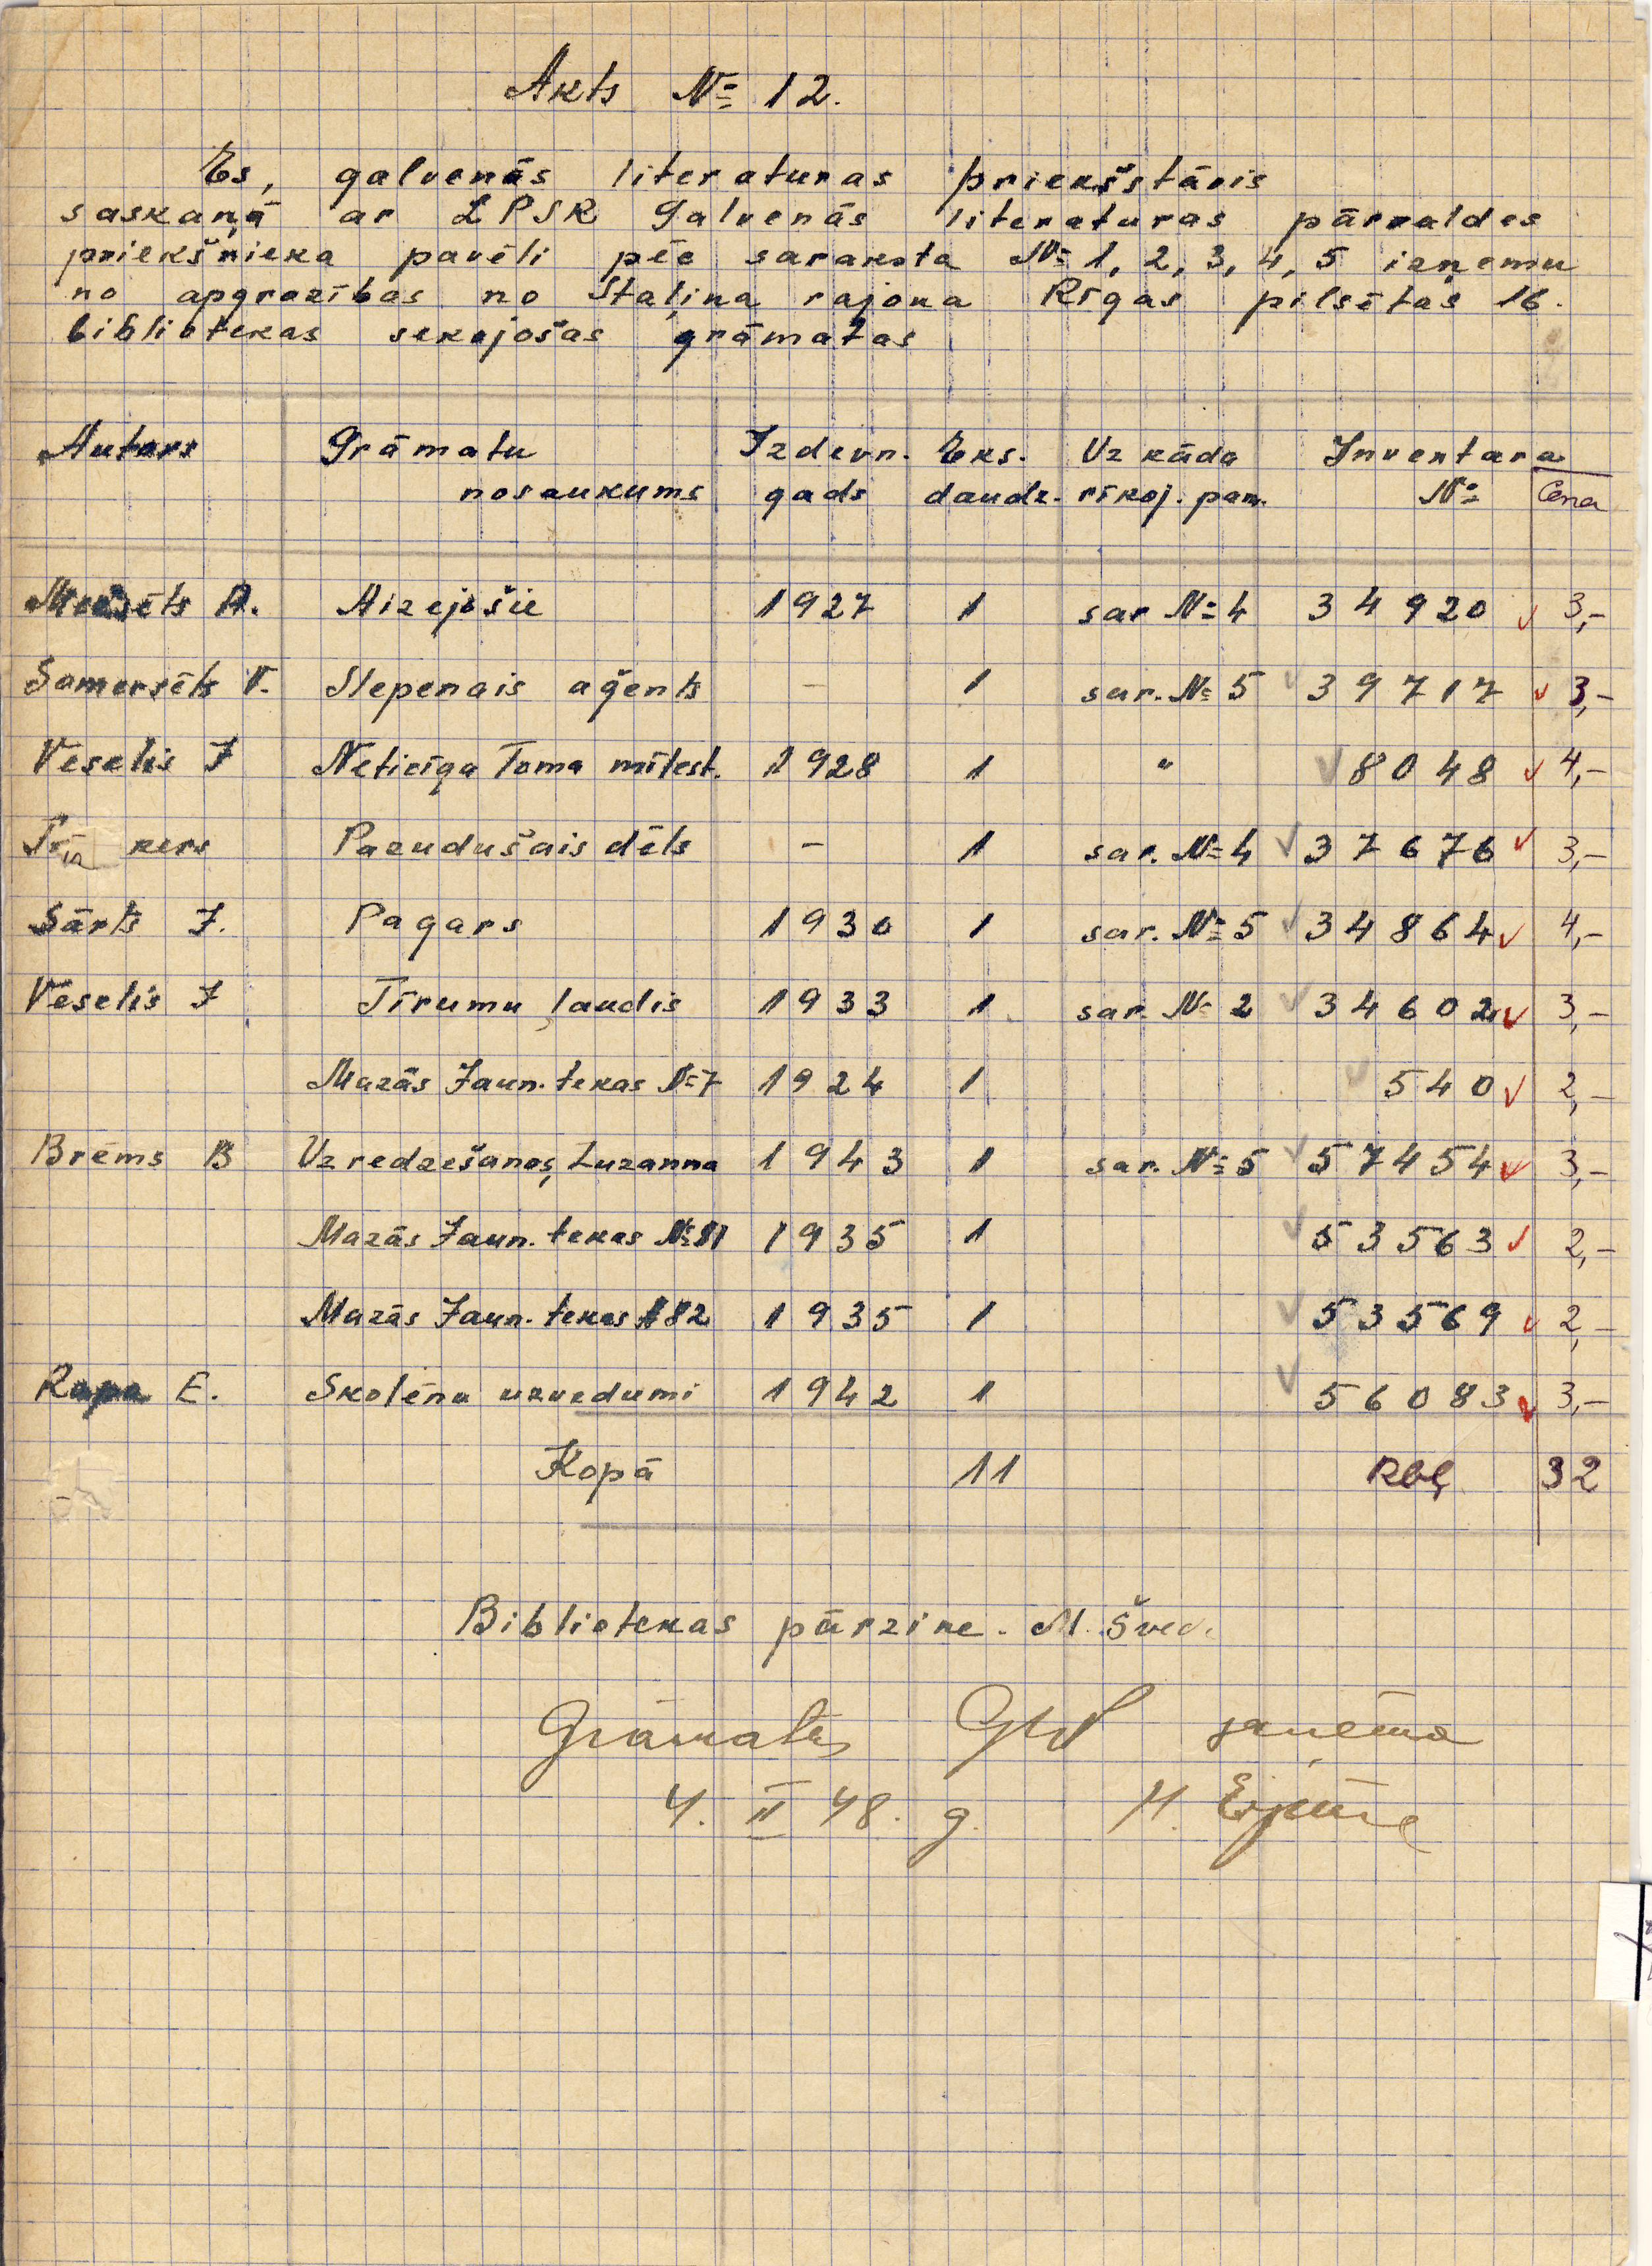 Akts № 12.
Es, galvenās literaturas priekšstāvis
saskaņā ar LPSR Galvenās literaturas pārvaldes
priekšnieka pavēli pēc saraksta № 1, 2, 3, 4, 5 izņemu
no apgrozības no Staļina rajona Rīgas pilsētas 16.
bibliotekas sekojošas grāmatas
Autors Grāmatu Izdevn. Eks. Uz kāda Inventara
nosaukums gads daudz. rīkoj. pam. № Cena
A. Aizejošie 1927 1 sar № 4 34920 3,-
Samersēts V. Slepenais aģents - 1 sar. № 5 39717 3,-
Veselis J Neticīga Toma mīlest. 1928 1 " 8048 4,-
Pazudušais dēls - 1 sar. № 4 37676 3,-
Sārts J. Pagars 1930 1 sar. № 5 34864 4,-
Veselis J Tīrumu ļaudis 1933 1 sar. № 2 34602 3,-
Mazās Jaun. tekas № 7 1924 1 540 2,-
Brēms B Uz redzešanos, Zuzanna 1943 1 sar. № 5 57454 3,-
Mazās Jaun. tekas № 81 1935 1 53563 2,-
Mazās Jaun. tekas № 82 1935 1 53569 2,-
Rapa E. Skolēnu uzvedumi 1942 1 56083 3,-
Kopā 11 Rbļ 32
Bibliotekas pārzine. M. Šved
Grāmatas saņēma
4. II 48. g. M.